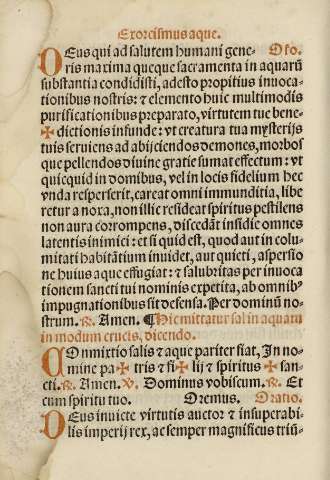 Exorcismus aque.
DEus qui ad salutem humani gene- Oĩo.
ris maxima queque sacramenta in aquarũ
substantia condidisti, adesto propitius inuoca-
tionibus nostris: ⁊ elemento huic multimodis
purificationibus preparato, virtutem tue bene-
✠dictionis infunde: vt creatura tua mysterijs
tuis seruiens ad abijciendos demones, morbos
que pellendos diuine gratie sumat effectum: vt
quicquid in domibus, vel in locis fidelium hec
vnda resperserit, careat omni immunditia, libe
retur a noxa, non illic resideat spiritus pestilens
non aura corrompens, discedãt insidie omnes
latentis inimici: et si quid est, quod aut in colu-
mitati habitãtium inuidet, aut quieti, aspersio
ne huius aque effugiat: ⁊ salubritas per inuoca
tionem sancti tui nominis expetita, ab omnibꝰ
impugnationibus sit defensa. Per dominũ no-
strum. ℟. Amen. ¶ Hic mittatur sal in aquam
in modum crucis, dicendo.
COmmixtio salis ⁊ aque pariter fiat, In no-
mine pa✠tris ⁊ fi✠lij ⁊ spiritus ✠ san-
cti. ℟. Amen. ℣. Dominus vobiscum. ℟. Et
cum spiritu tuo. Oremus. Oratio.
DEus inuicte virtutis auctor ⁊ insuperabi-
lis imperij rex, ac semper magnificus triũ-